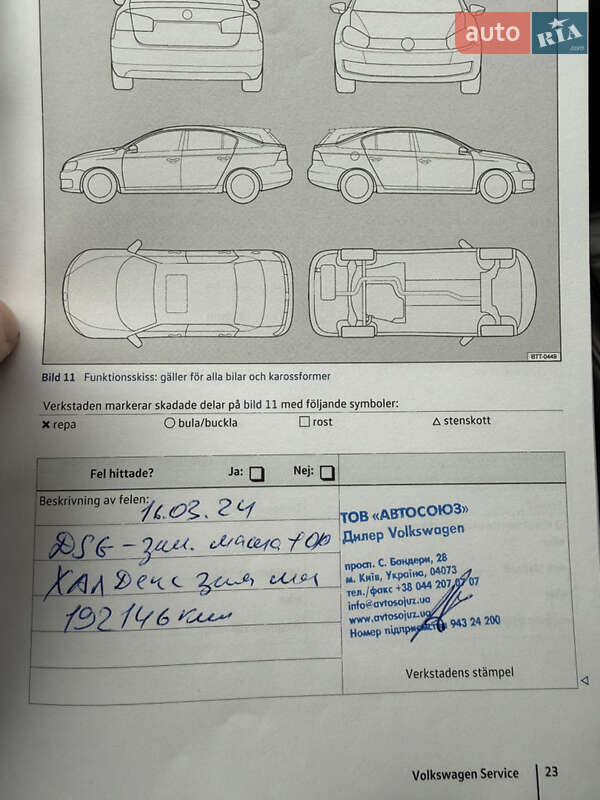 auto RIA .com
BTT-0449
Bild 11 Funktionsskiss: gäller för alla bilar och karossformer
Verkstaden markerar skadade delar på bild 11 med följande symboler:
✖ repa ○ bula/buckla □ rost △ stenskott
Fel hittade? Ja: Nej:
Beskrivning av felen:
16.03.24
DSG – зам. масла + ф
ХАЛДекс зам ма
192146 км
ТОВ «АВТОСОЮЗ»
Дилер Volkswagen
просп. С. Бандери, 28
м. Київ, Україна, 04073
тел./факс +38 044 207 07 07
info@avtosojuz.ua
www.avtosojuz.ua
Номер підприємства 943 24 200
Verkstadens stämpel
Volkswagen Service 23